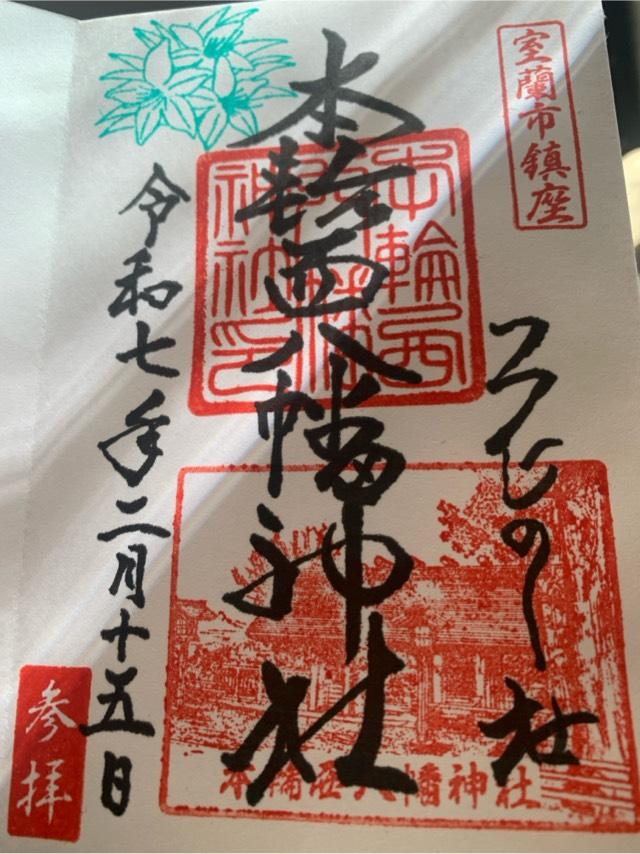 室蘭市鎮座
つつじの杜
本輪西八幡神社
本輪西
八幡
神社印
本輪西八幡神社
令和七年二月十五日
参拝